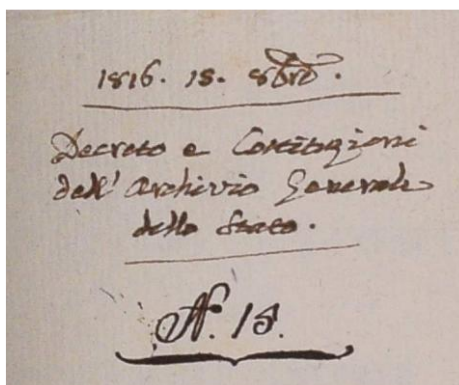 1816. 18. 8bre.
Decreto e Costituzioni
dell' Archivio Generale
dello Stato.
N. 18.